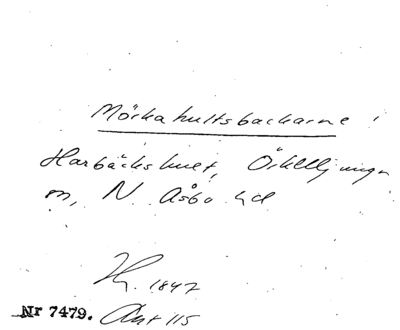 Mörkahultsbackarne
Harbäckshult, Örkelljunga
sn, N Åsbo hd
Hz. 1847
Nr 7479. Akt 115